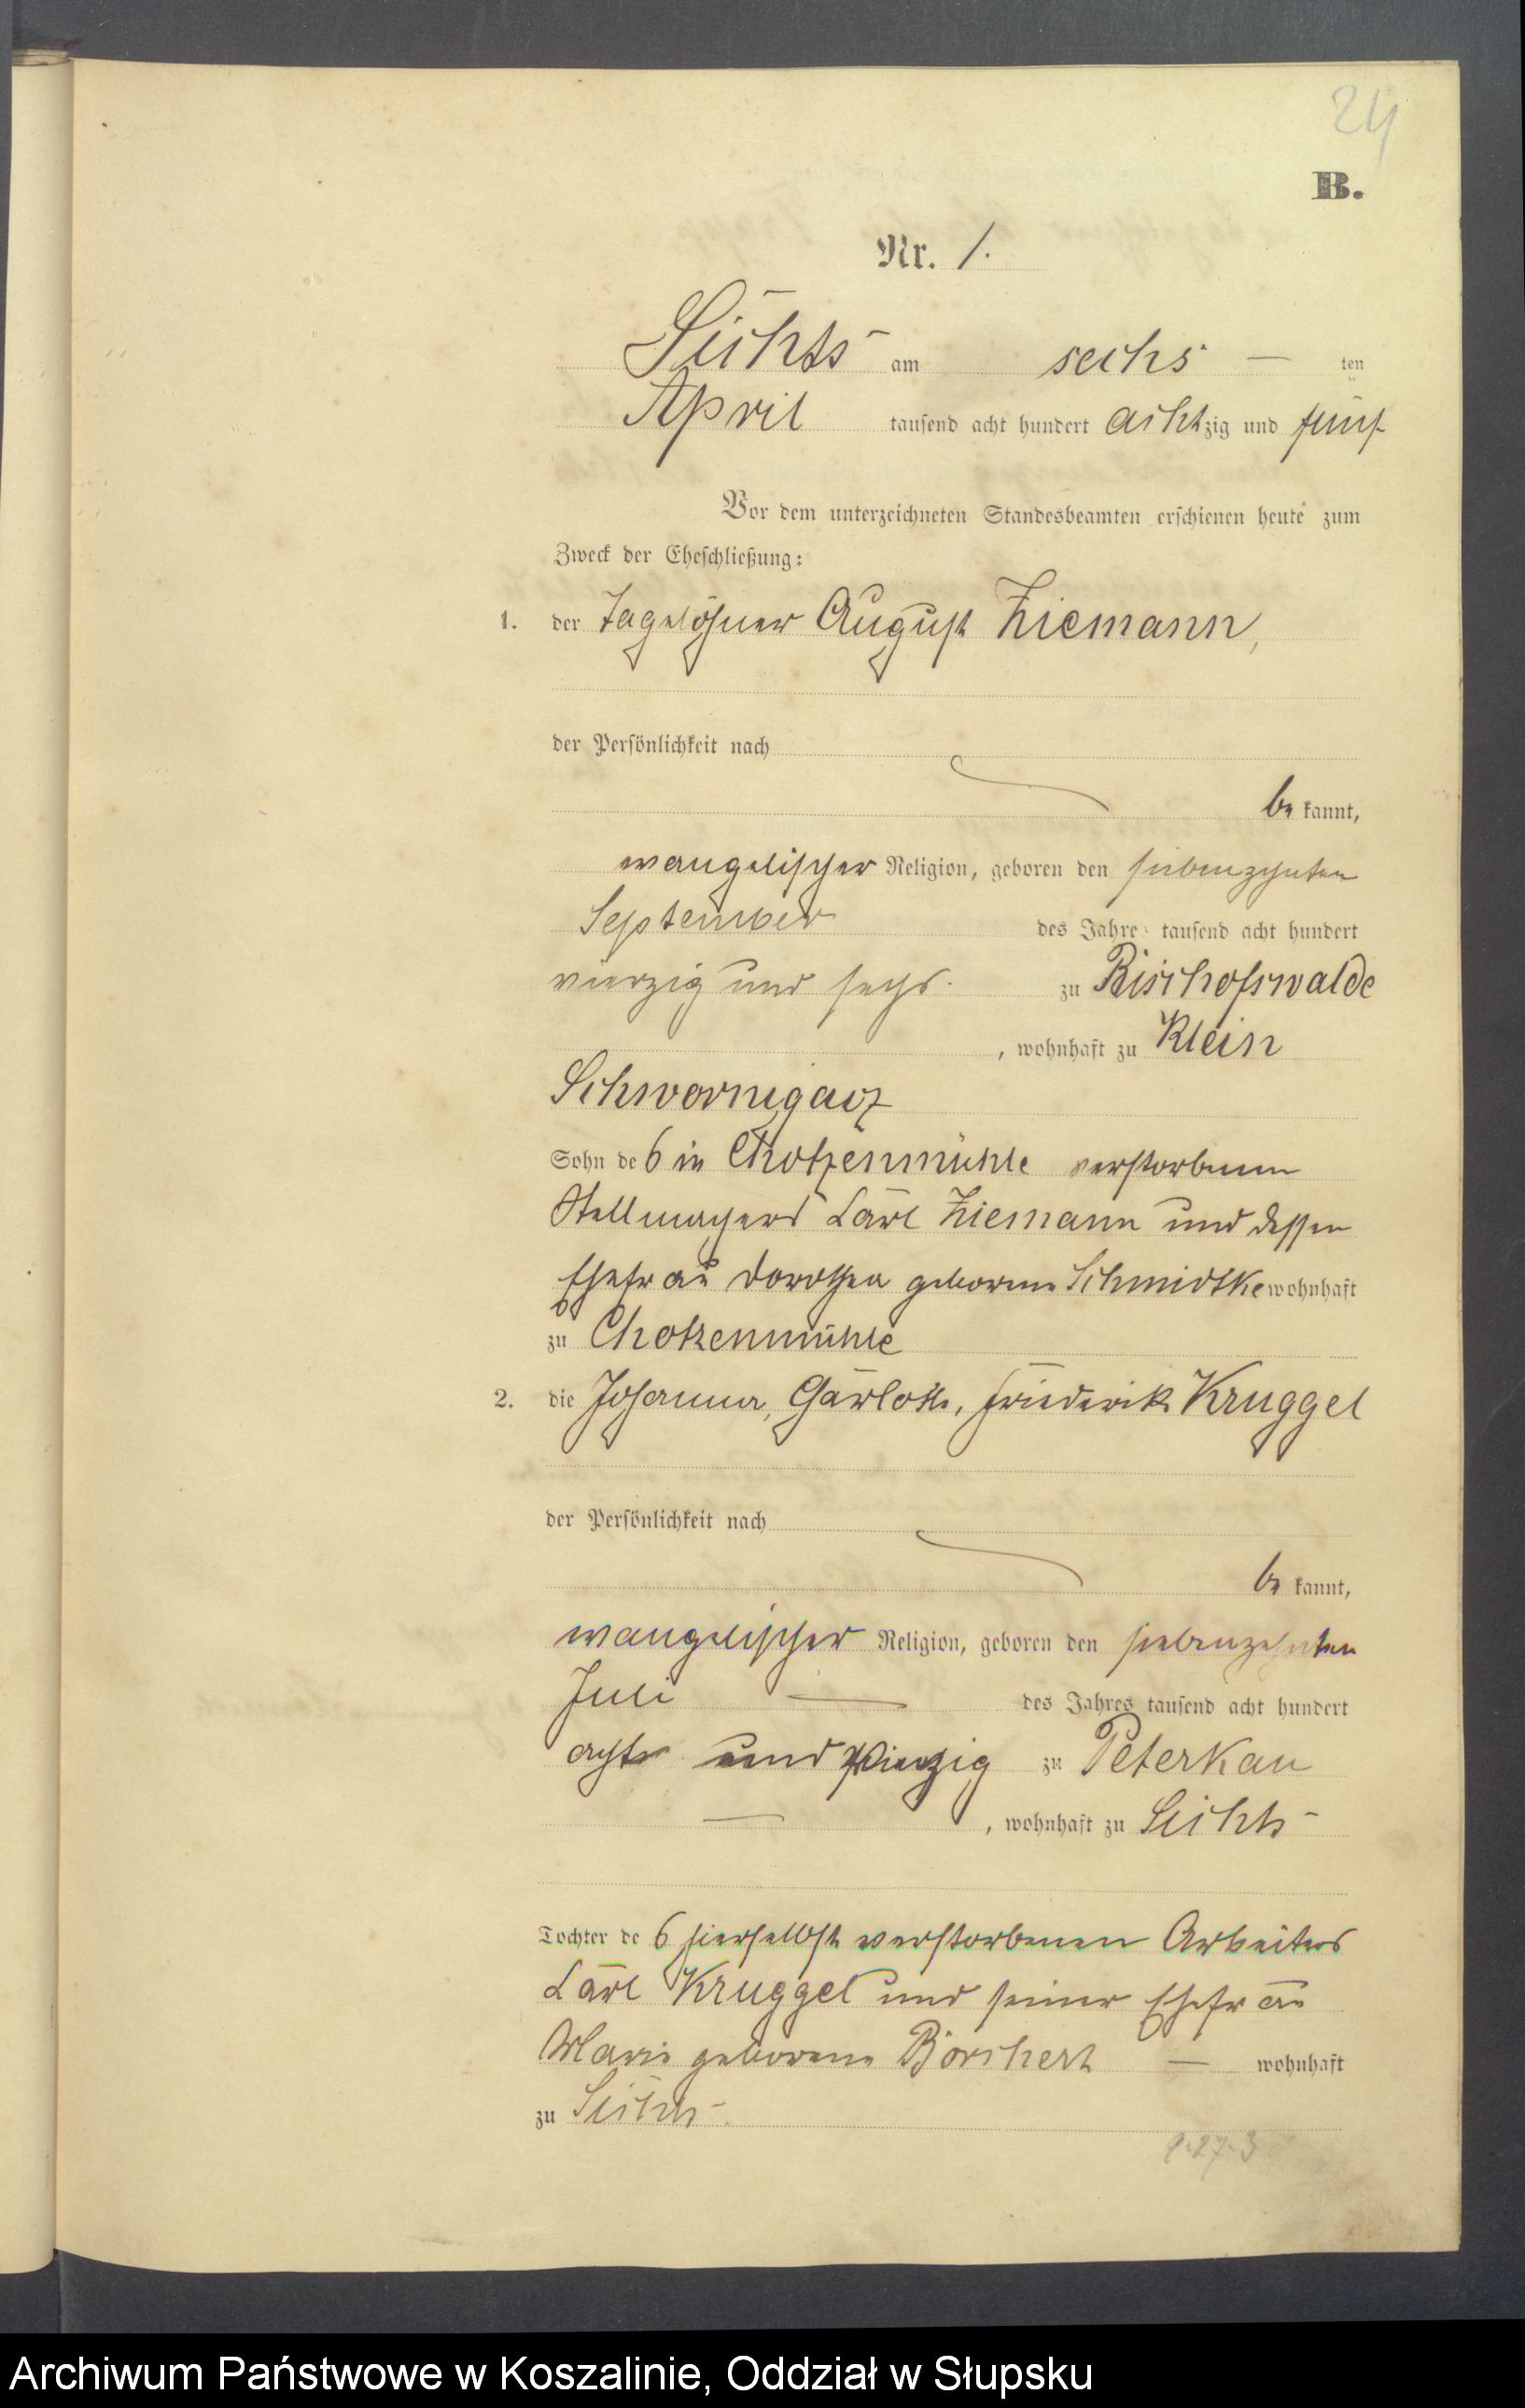 24
B.
Nr. 1.
Sichts am sechs — ten
April tausend acht hundert achtzig und fünf
Vor dem unterzeichneten Standesbeamten erschienen heute zum
Zweck der Eheschließung:
1. der Tagelöhner August Ziemann,
der Persönlichkeit nach
be kannt,
evangelischer Religion, geboren den siebenzehnten
September des Jahres tausend acht hundert
vierzig und sechs. zu Bischofswalde
, wohnhaft zu Klein
Schwornigatz
Sohn des in Chotzenmühle verstorbenen
Stellmachers Carl Ziemann und dessen
Ehefrau Dorothea geborene Schmidtke wohnhaft
zu Chotzenmühle
2. die Johanna, Charlotte, Friederike Kruggel
der Persönlichkeit nach
be kannt,
evangelischer Religion, geboren den siebenzehnten
Juli — des Jahres tausend acht hundert
acht und vierzig zu Peterkau
— , wohnhaft zu Sichts
Tochter des hierselbst verstorbenen Arbeiters
Carl Kruggel und seiner Ehefrau
Marie geborene Borchert — wohnhaft
zu Sichts.
Archiwum Państwowe w Koszalinie, Oddział w Słupsku